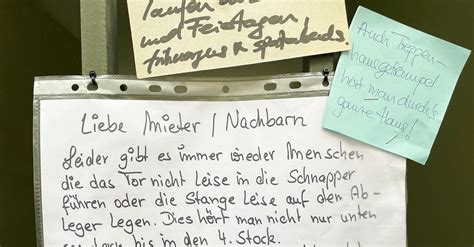 laufen
und Feiertagen,
frühmorgens & spätabends
Auch Treppen-
hausgetrampel
hört man durch's
ganze Haus!
Liebe Mieter / Nachbarn
Leider gibt es immer wieder Menschen
die das Tor nicht Leise in die Schnapper
führen oder die Stange Leise auf den Ab-
leger Legen. Dies hört man nicht nur unten
bis in den 4. Stock.